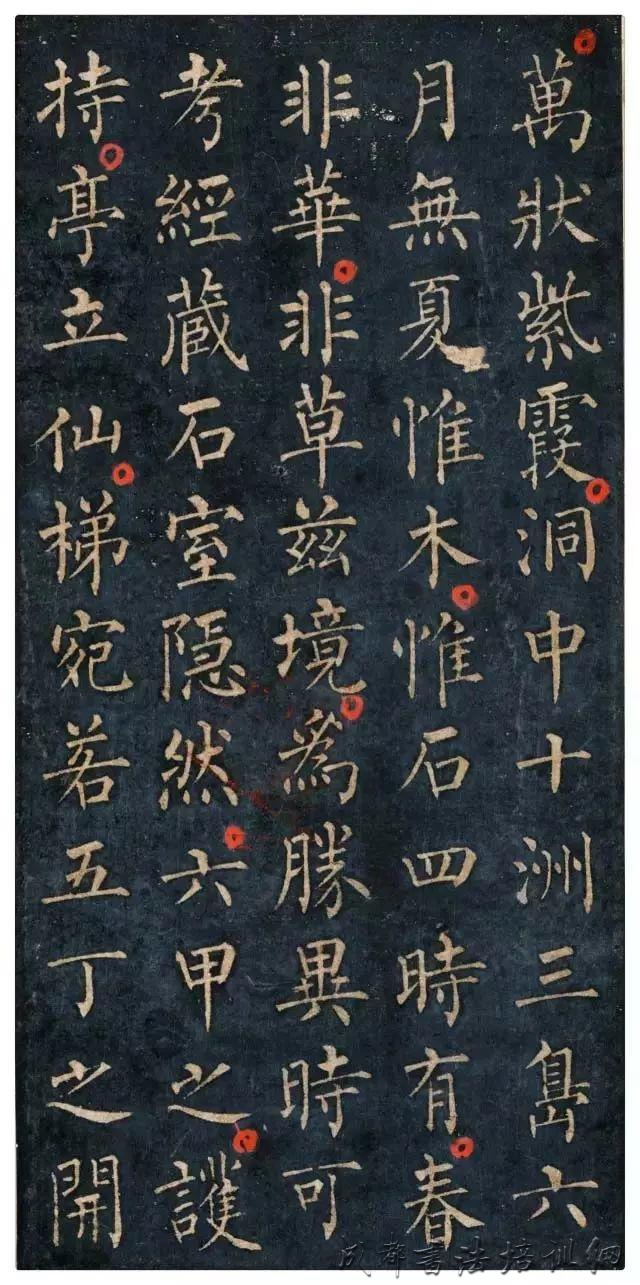 萬狀紫霞洞中十洲三島六
月無夏惟木惟石四時有春
非華非草茲境爲勝異時可
考經蔵石室隱然六甲之護
持亭立仙梯宛若五丁之開
成都書法培训网